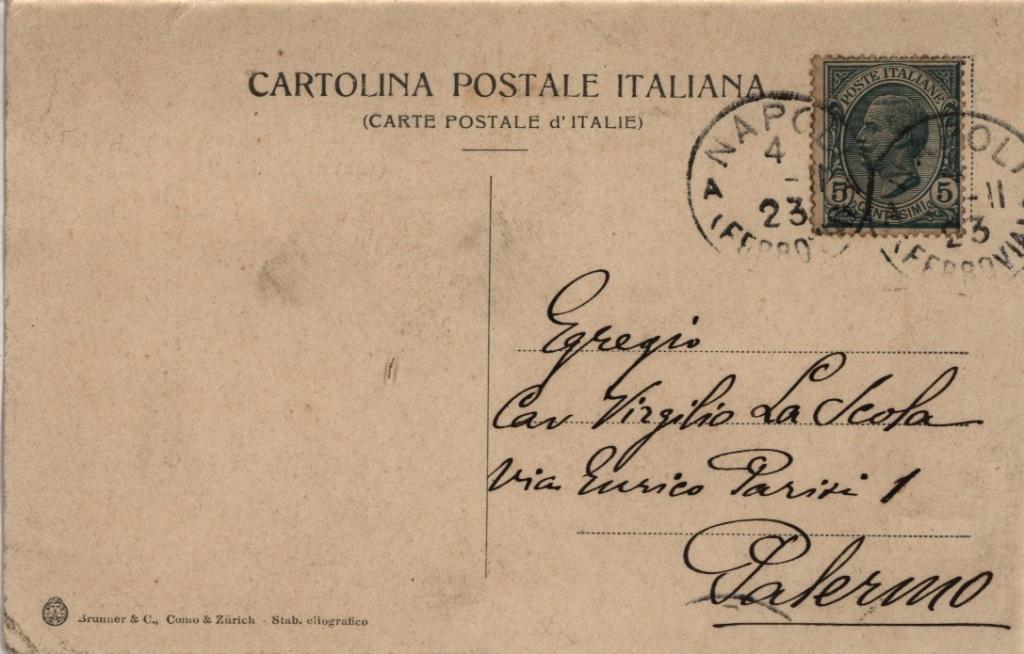 CARTOLINA POSTALE ITALIANA
(CARTE POSTALE d'ITALIE)
POSTE ITALIANE
5 5
CENTESIMI
NAPO
4
23
(FERRO
OLI
-II
23
(FERROVIA
Egregio
Cav Virgilio La Scola
Via Enrico Parisi 1
Palermo
Brunner & C., Como & Zürich - Stab. eliografico